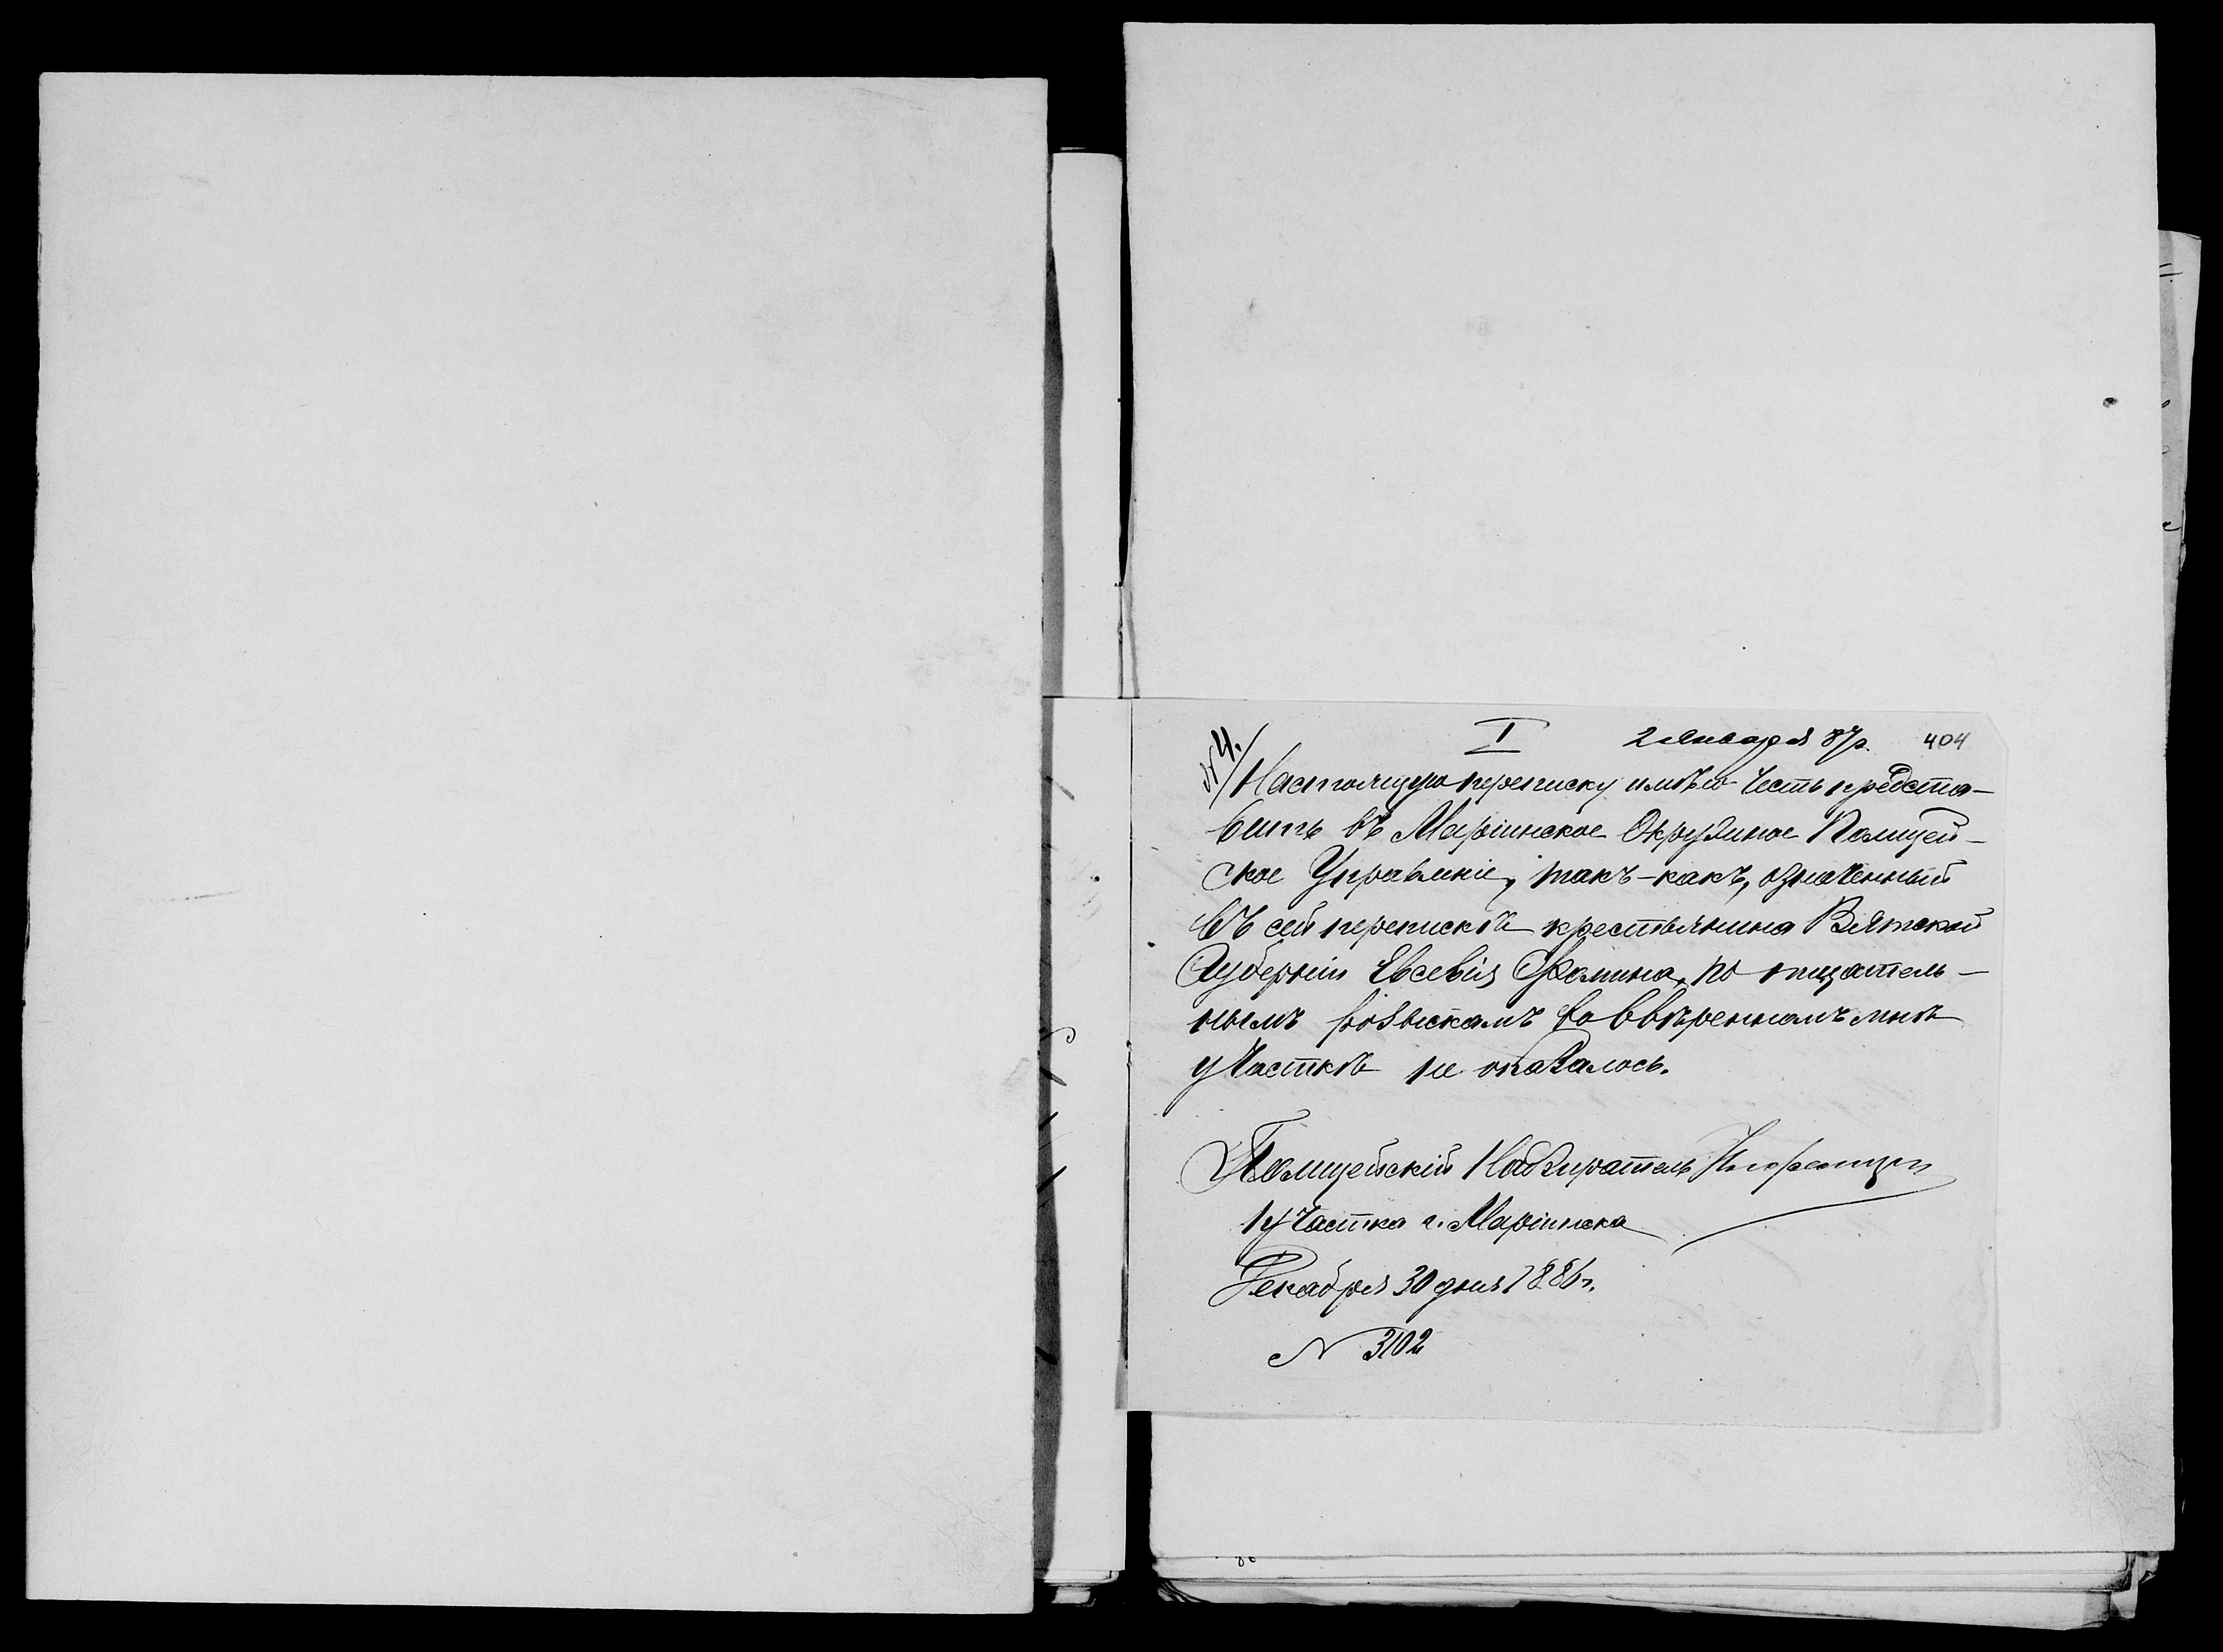 I 2 Января 87г. 404
№ 4.
Настоящую переписку имѣю честь предста-
вить въ Маріинское Окружное Полицей-
ское Управленіе, такъ-какъ, означенный
въ сей перепискѣ крестьянина Вятской
Губерніи Евсевія Фомина, по тщатель-
нымъ розыскамъ во ввѣренномъ мнѣ
участкѣ не оказалось.
Полицейскій Надзиратель
1 участка г. Маріинска
Декабря 30 дня 1886 г.
№ 3102